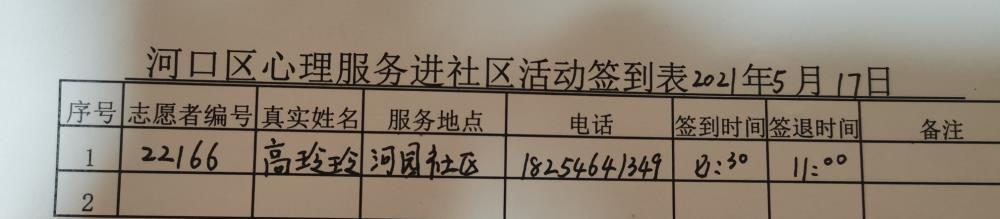 河口区心理服务进社区活动签到表2021年5月17日
序号 志愿者编号 真实姓名 服务地点 电话 签到时间 签退时间 备注
1 22166 高玲玲 河园社区 18254641349 8:30 11:00
2